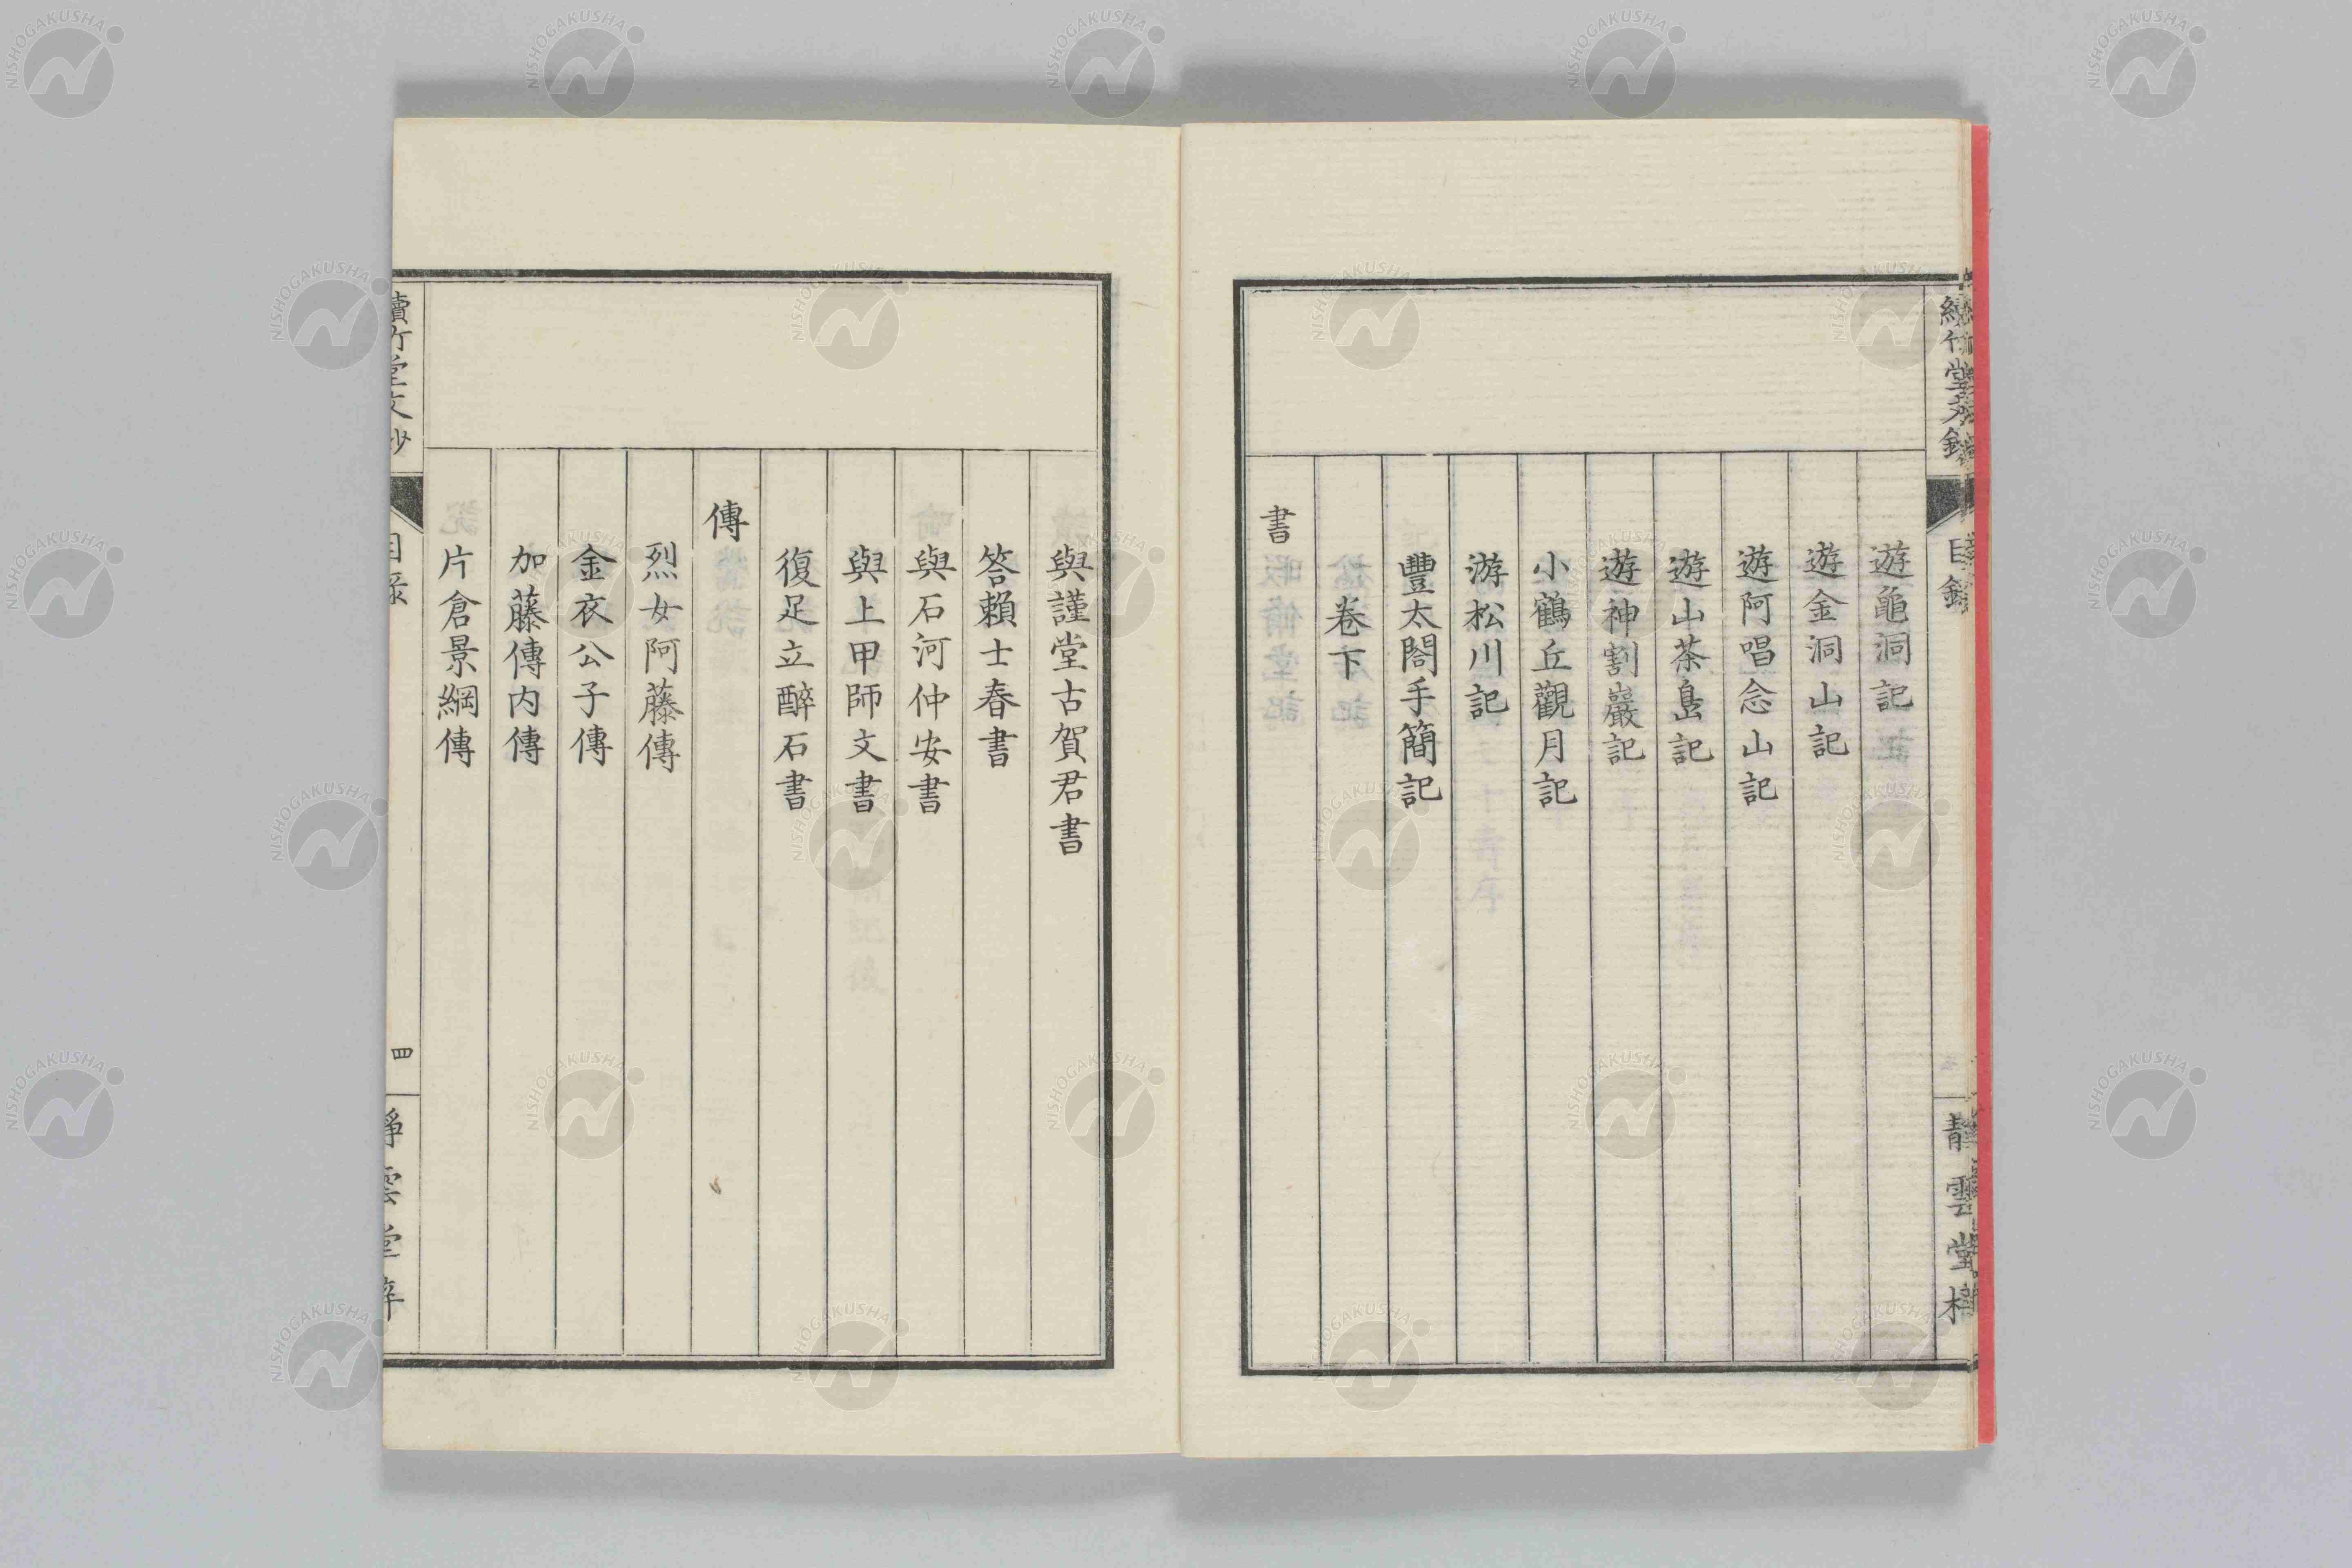 遊龜洞記
遊金洞山記
遊阿唱念山記
遊山茶島記
遊神割巖記
小鶴丘觀月記
游松川記
豐太閤手簡記
卷下
書
與謹堂古賀君書
答賴士春書
與石河仲安書
與上甲師文書
復足立醉石書
傳
烈女阿藤傳
金衣公子傳
加藤傳内傳
片倉景綱傳
續竹堂文鈔
目錄
四
靜雲堂梓
NISHOGAKUSHA